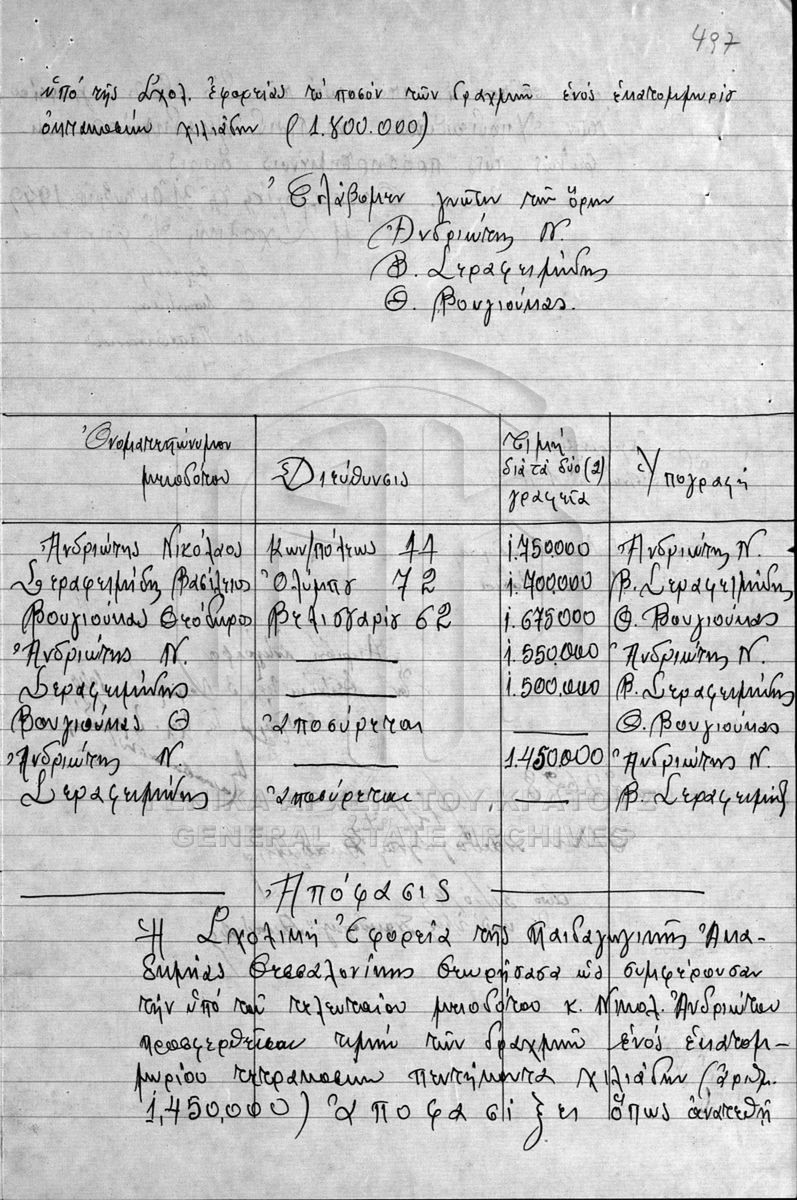 497
ὑπό τῆς Σχολ. Ἐφορείας τό ποσόν τῶν δραχμῶν ἑνός ἑκατομμυρίο
ὀκτακοσίων χιλιάδων (1.800.000)
Ἐλάβομεν γνῶσιν τῶν ὅρων
Ἀνδριώτης Ν.
Β. Σεραφειμίδης
Θ. Βουγιούκας.
Ὀνοματεπώνυμον μειοδότου Διεύθυνσις Τιμή διά τά δύο (2) γραφεῖα Ὑπογραφή
Ἀνδριώτης Νικόλαος Κων/πόλεως 44 1.750.000 Ἀνδριώτης Ν.
Σεραφειμίδης Βασίλειος Ὀλύμπου 72 1.700.000 Β. Σεραφειμίδης
Βουγιούκας Θεόδωρος Βελισσαρίου 62 1.675000 Θ. Βουγιούκας
Ἀνδριώτης Ν. 1.550.000 Ἀνδριώτης Ν.
Σεραφειμίδης 1.500.000 Β. Σεραφειμίδης
Βουγιούκας Θ Ἀποσύρεται Θ. Βουγιούκας
Ἀνδριώτης Ν. 1.450.000 Ἀνδριώτης Ν.
Σεραφειμίδης Ἀποσύρεται Β. Σεραφειμίδης
ΓΕΝΙΚΑ ΑΡΧΕΙΑ ΤΟΥ ΚΡΑΤΟΥΣ
GENERAL STATE ARCHIVES
Ἀπόφασις
Ἡ Σχολική Ἐφορεία τῆς Παιδαγωγικῆς Ἀκα-
δημίας Θεσσαλονίκης θεωρήσασα ὡς συμφέρουσαν
τήν ὑπό τοῦ τελευταίου μειοδότου κ. Νικολ. Ἀνδριώτου
προσφερθεῖσαν τιμήν τῶν δραχμῶν ἑνός ἑκατομ-
μυρίου τετρακοσίων πεντήκοντα χιλιάδων (ἀριθ.
1,450,000) Ἀποφασίζει ὅπως ἀνατεθῇ